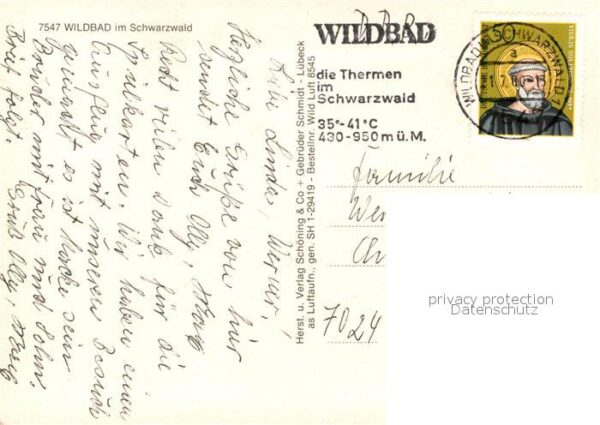 7547 WILDBAD im Schwarzwald
Liebe Linda, Werner!
Herzliche Grüße von hier
sendet Euch Olly, 
Recht vielen Dank für die
 Wir haben einen
Ausflug mit unserem Besuch
gemacht es ist Marke sein
Bruder mit Frau und Sohn.
Brief folgt.
Gruß Olly, 
Herst. u. Verlag Schöning & Co + Gebrüder Schmidt - Lübeck
as Luftaufn., gen. SH 1-29419 - Bestellnr. Wild Luft 8545
DDR
WILDBAD
die Thermen
im
Schwarzwald
35°-41°C
430-950 m ü. M.
WILDBAD IM SCHWARZWALD 1
a
50
Familie
We
7024
privacy protection
Datenschutz